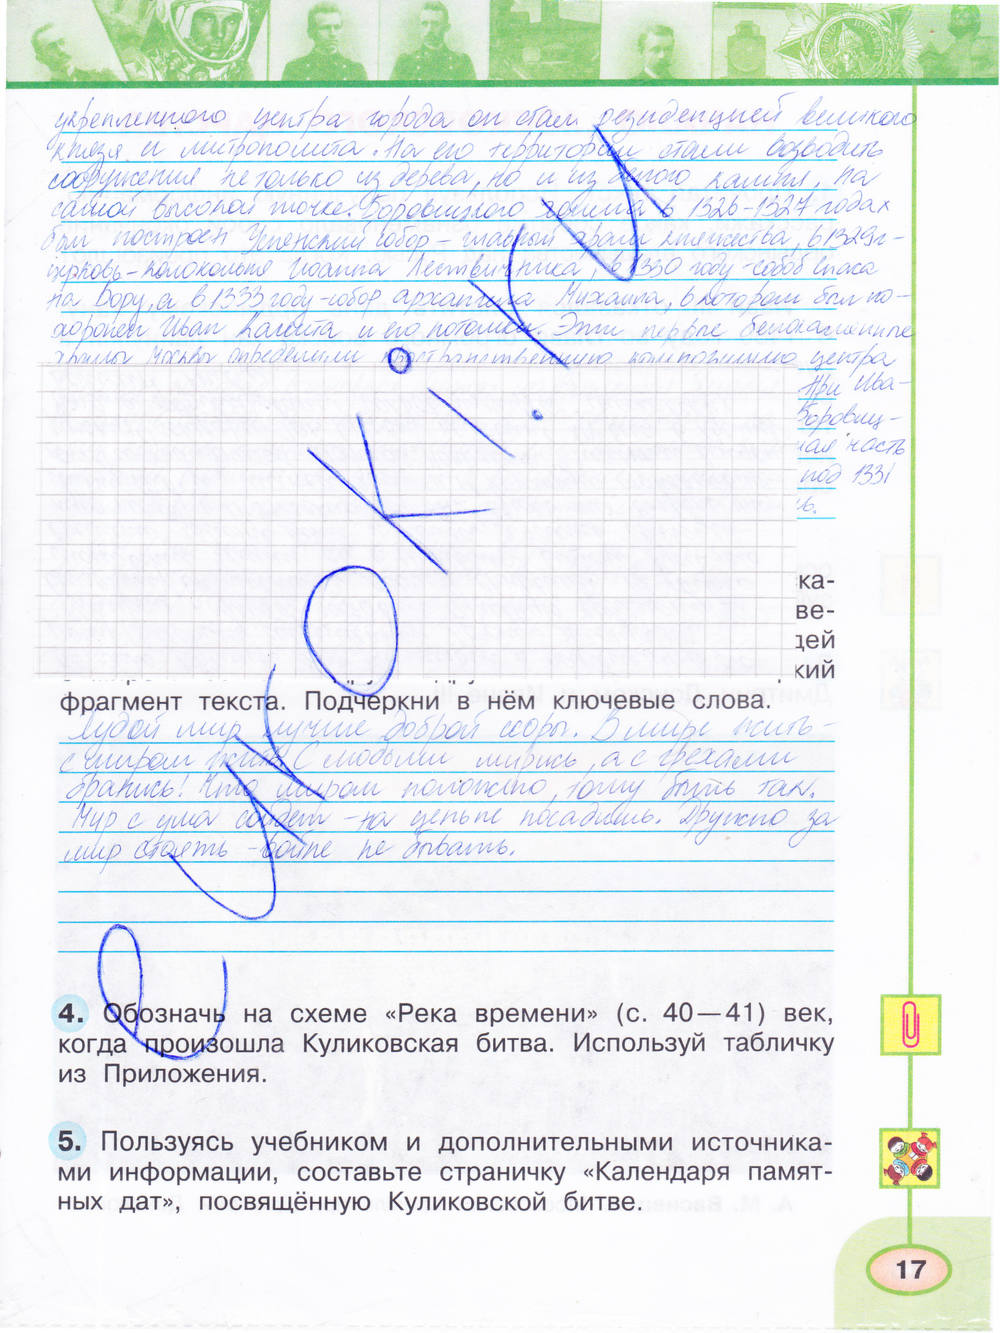 укрепленного центра города он стал резиденцией великого
князя и митрополита. На его территории стали возводить
сооружения не только из дерева, но и из белого камня. На
самой высокой точке Боровицкого холма в 1326-1327 годах
был построен Успенский собор – главный храм княжества, в 1329г-
церковь-колокольня Иоанна Лествичника, в 1330 году -собор Спаса
на Бору, а в 1333 году -собор архангела Михаила, в котором был по-
хоронен Иван Калита и его потомки. Эти первые белокаменные
храмы Москвы определили пространственную композицию центра
При Ива-
Боровиц-
ная часть
под 1331
ка-
ве-
дей
кий
фрагмент текста. Подчеркни в нём ключевые слова.
Худой мир лучше доброй ссоры. В мире жить -
с миром жить. С людьми мирись, а с грехами
бранись! Что миром положено, тому быть так.
Мир с ума сойдет - на цепь не посадишь. Дружно за
мир стоять - войне не бывать.
4. Обозначь на схеме «Река времени» (с. 40—41) век,
когда произошла Куликовская битва. Используй табличку
из Приложения.
5. Пользуясь учебником и дополнительными источника-
ми информации, составьте страничку «Календаря памят-
ных дат», посвящённую Куликовской битве.
17